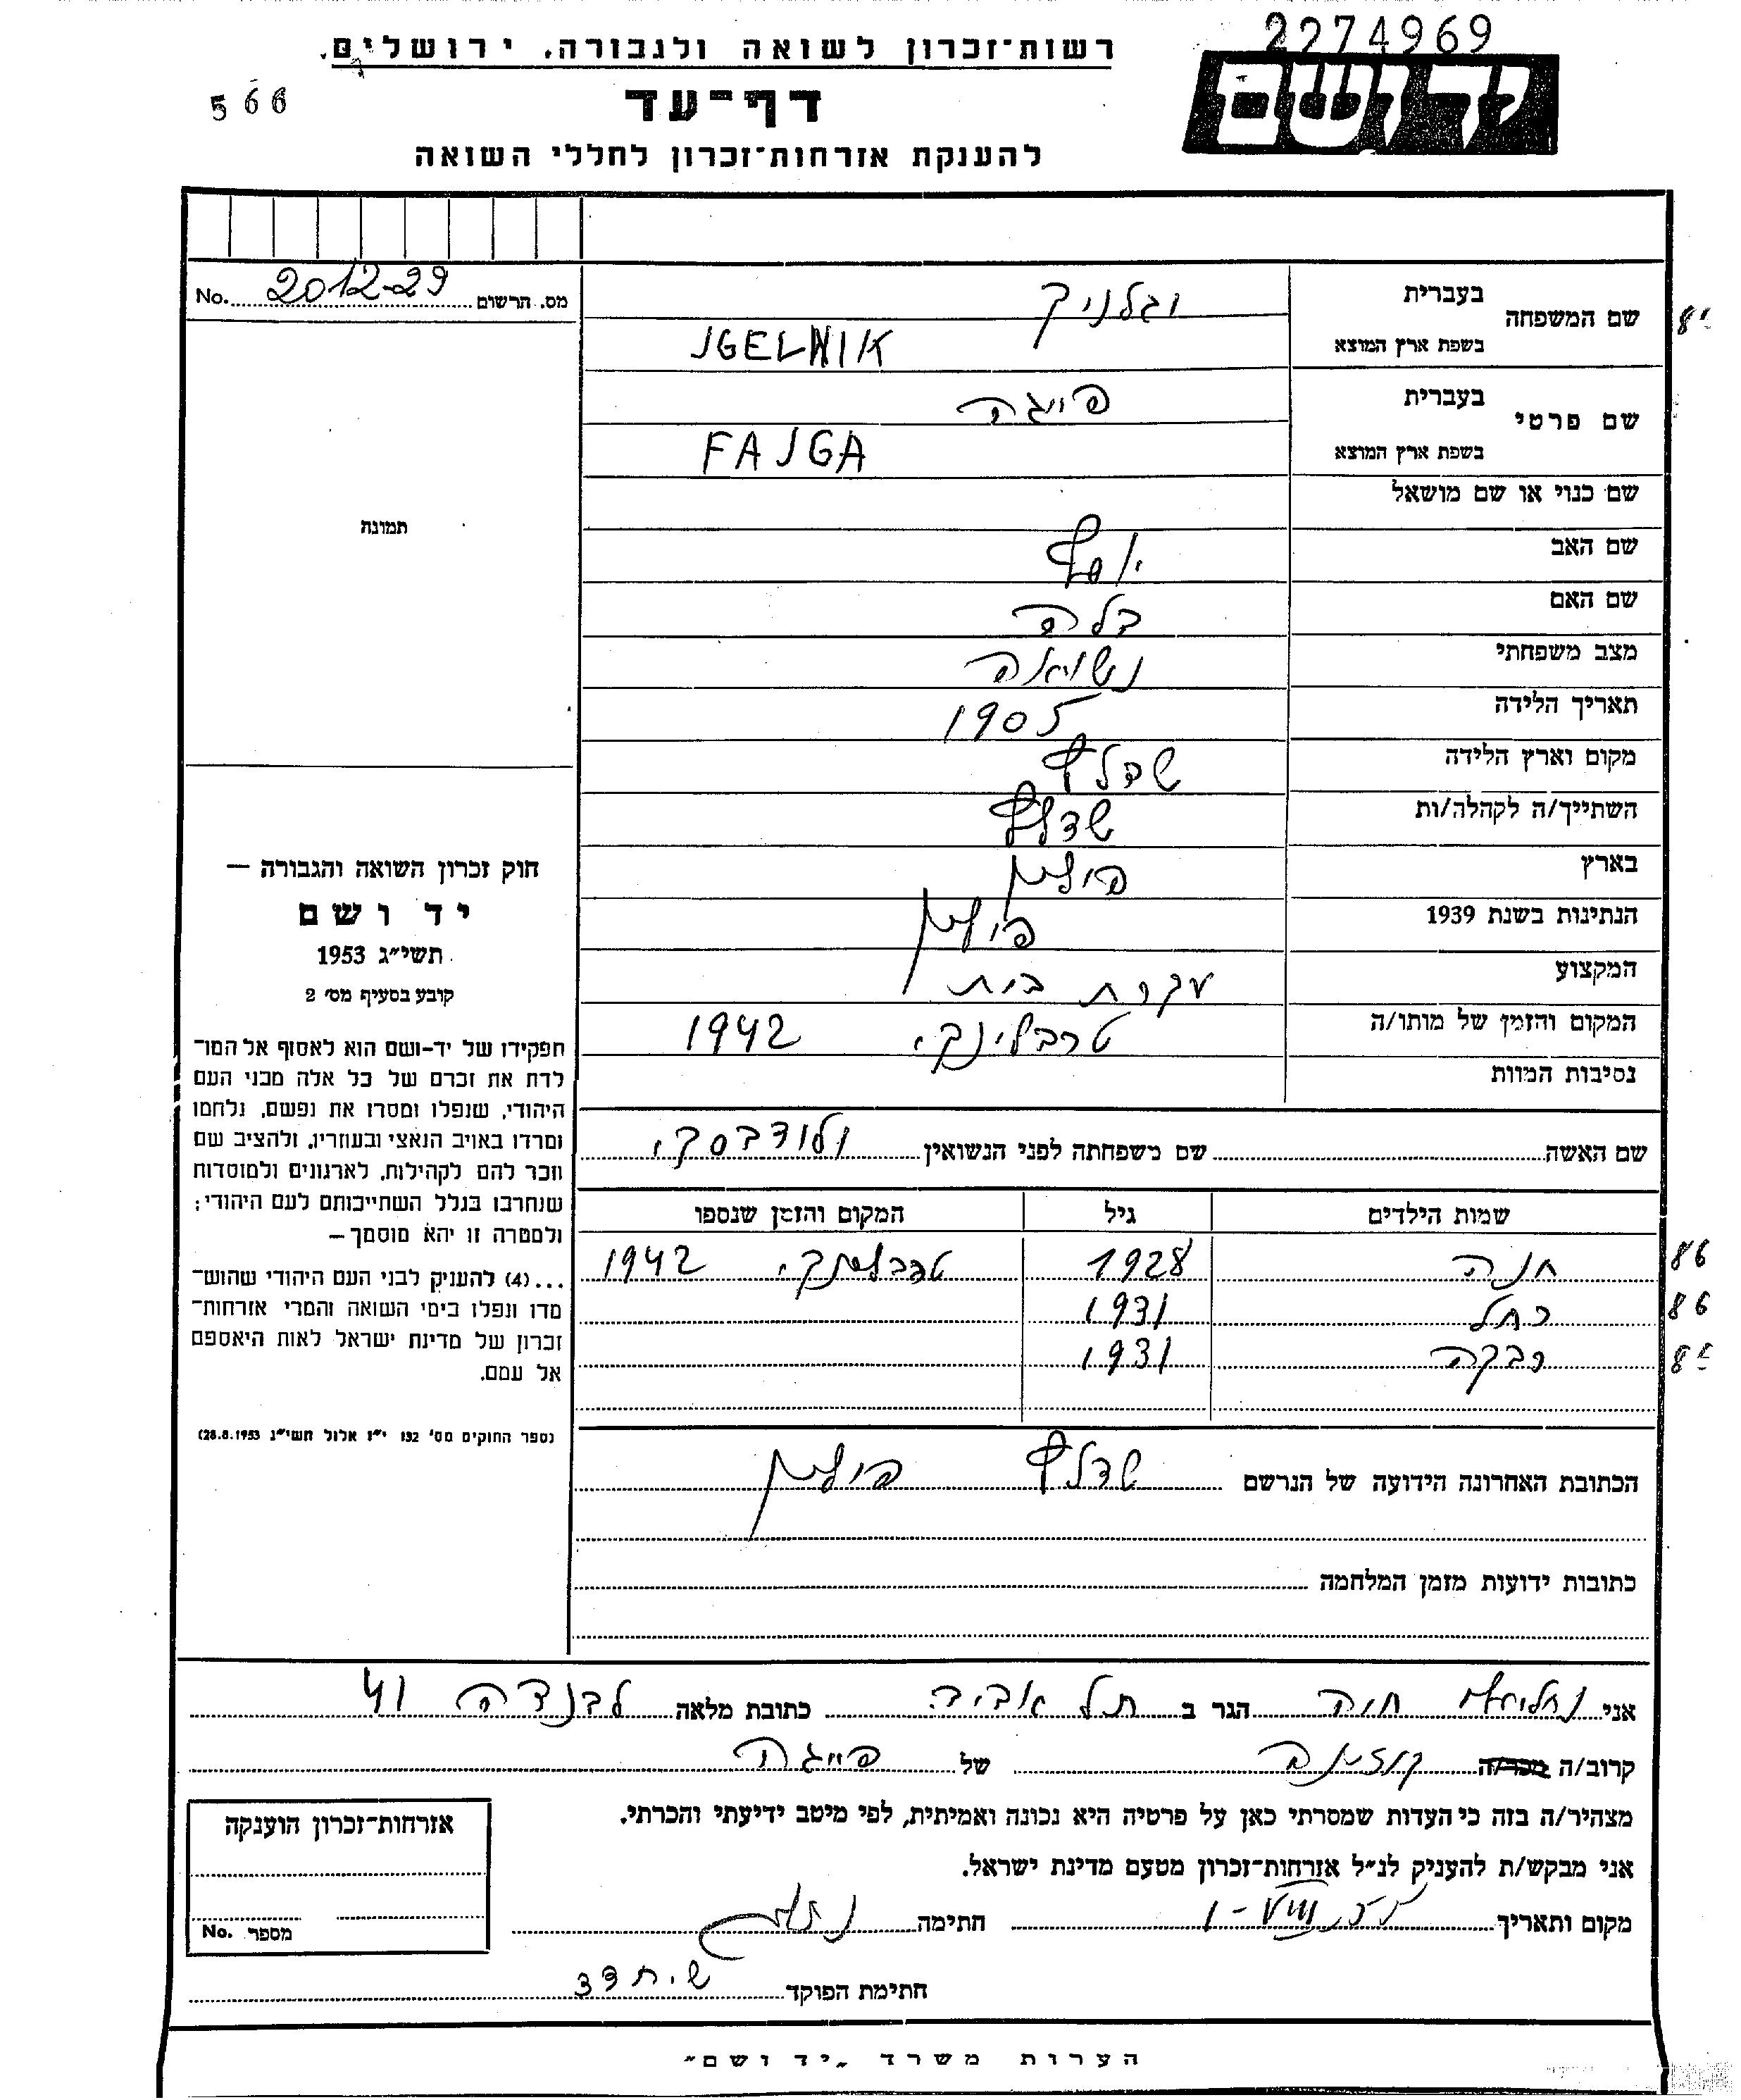 2274969
רשות־זכרון לשואה ולגבורה, ירושלים.
יד ושם
דף־עד
566
להענקת אזרחות־זכרון לחללי השואה
מס. הרשום 2012-29 No.
שם המשפחה
בעברית
וגלניק
בשפת ארץ המוצא JGELNIK
שם פרטי
בעברית פייגה
בשפת ארץ המוצא FAJGA
שם כנוי או שם מושאל
שם האב יוסף
שם האם בלה
מצב משפחתי נשואה
תאריך הלידה 1905
מקום וארץ הלידה
השתייך/ה לקהלה/ות
בארץ פולין
הנתינות בשנת 1939 פולין
המקצוע עקרת בית
המקום והזמן של מותו/ה טרבלינקי 1942
נסיבות המוות
תמונה
חוק זכרון השואה והגבורה —
יד ושם
תשי״ג 1953
קובע בסעיף מס׳ 2
תפקידו של יד-ושם הוא לאסוף אל המו־
לדת את זכרם של כל אלה מבני העם
היהודי, שנפלו ומסרו את נפשם, נלחמו
ומרדו באויב הנאצי ובעוזריו, ולהציב שם
וזכר להם לקהילות, לארגונים ולמוסדות
שנחרבו בגלל השתייכותם לעם היהודי;
ולמטרה זו יהא מוסמך —
...(4) להעניק לבני העם היהודי שהוש־
מדו ונפלו בימי השואה והמרי אזרחות־
זכרון של מדינת ישראל לאות היאספם
אל עמם.
(ספר החוקים מס׳ 132 י״ז אלול תשי״ג 28.8.1953)
שם האשה שם משפחתה לפני הנשואין
שמות הילדים גיל המקום והזמן שנספו
חנה 1928 טרבלינקי 1942
רחל 1931
רבקה 1931
86
86
הכתובת האחרונה הידועה של הנרשם פולין
כתובות ידועות מזמן המלחמה
אני חיה הגר ב תל אביב כתובת מלאה לבנדה 41
קרוב/ה מכר/ה של פייגה
מצהיר/ה בזה כי העדות שמסרתי כאן על פרטיה היא נכונה ואמיתית, לפי מיטב ידיעתי והכרתי.
אני מבקש/ת להעניק לנ״ל אזרחות־זכרון מטעם מדינת ישראל.
מקום ותאריך חתימה
חתימת הפוקד
אזרחות־זכרון הוענקה
מספר No.
הערות משרד „יד ושם״